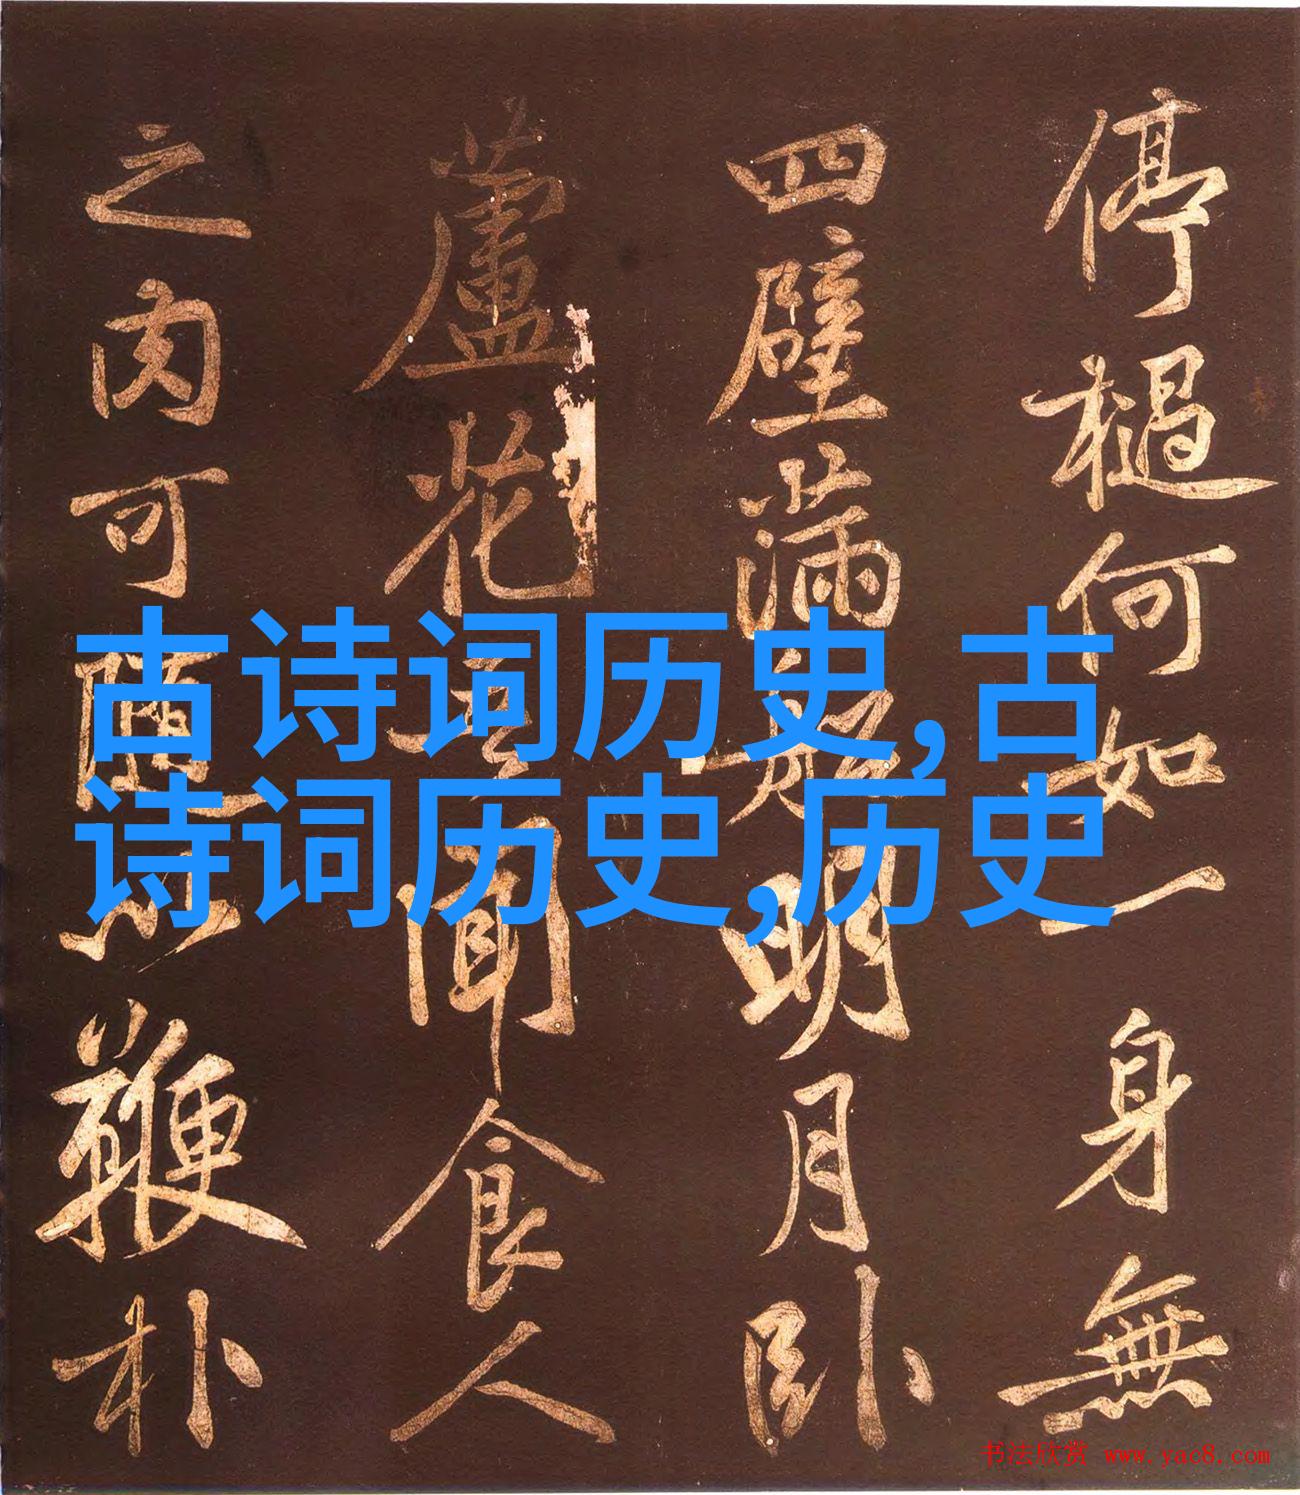 停檛何如一身無
四壁滿船明月卧
蘆花吾聞食人
之肉可隨以鞭朴
古诗词历史,古
诗词历史,历史
书法欣赏 www.yac8.com